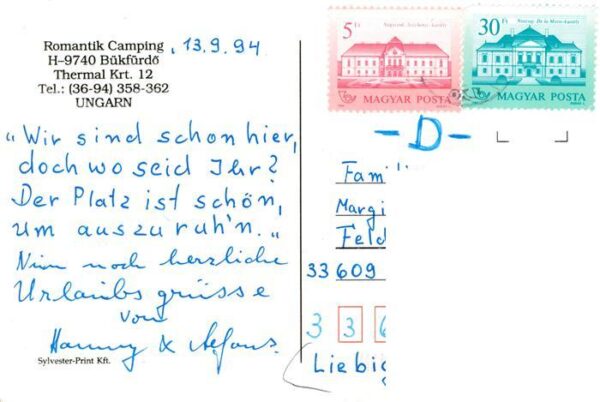 Romantik Camping, 13.9.94
H-9740 Bükfürdő
Thermal Krt. 12
Tel.: (36-94) 358-362
UNGARN
„Wir sind schon hier,
doch wo seid Ihr?
Der Platz ist schön,
um auszuruh'n.“
Nun noch herzliche
Urlaubsgrüsse
von
Hanny & Alfons.
Sylvester-Print Kft.
5 Ft
MAGYAR POSTA
30 Ft
MAGYAR POSTA
-D-
Fami
Margi
Feld
33609
3 3 6
Liebig